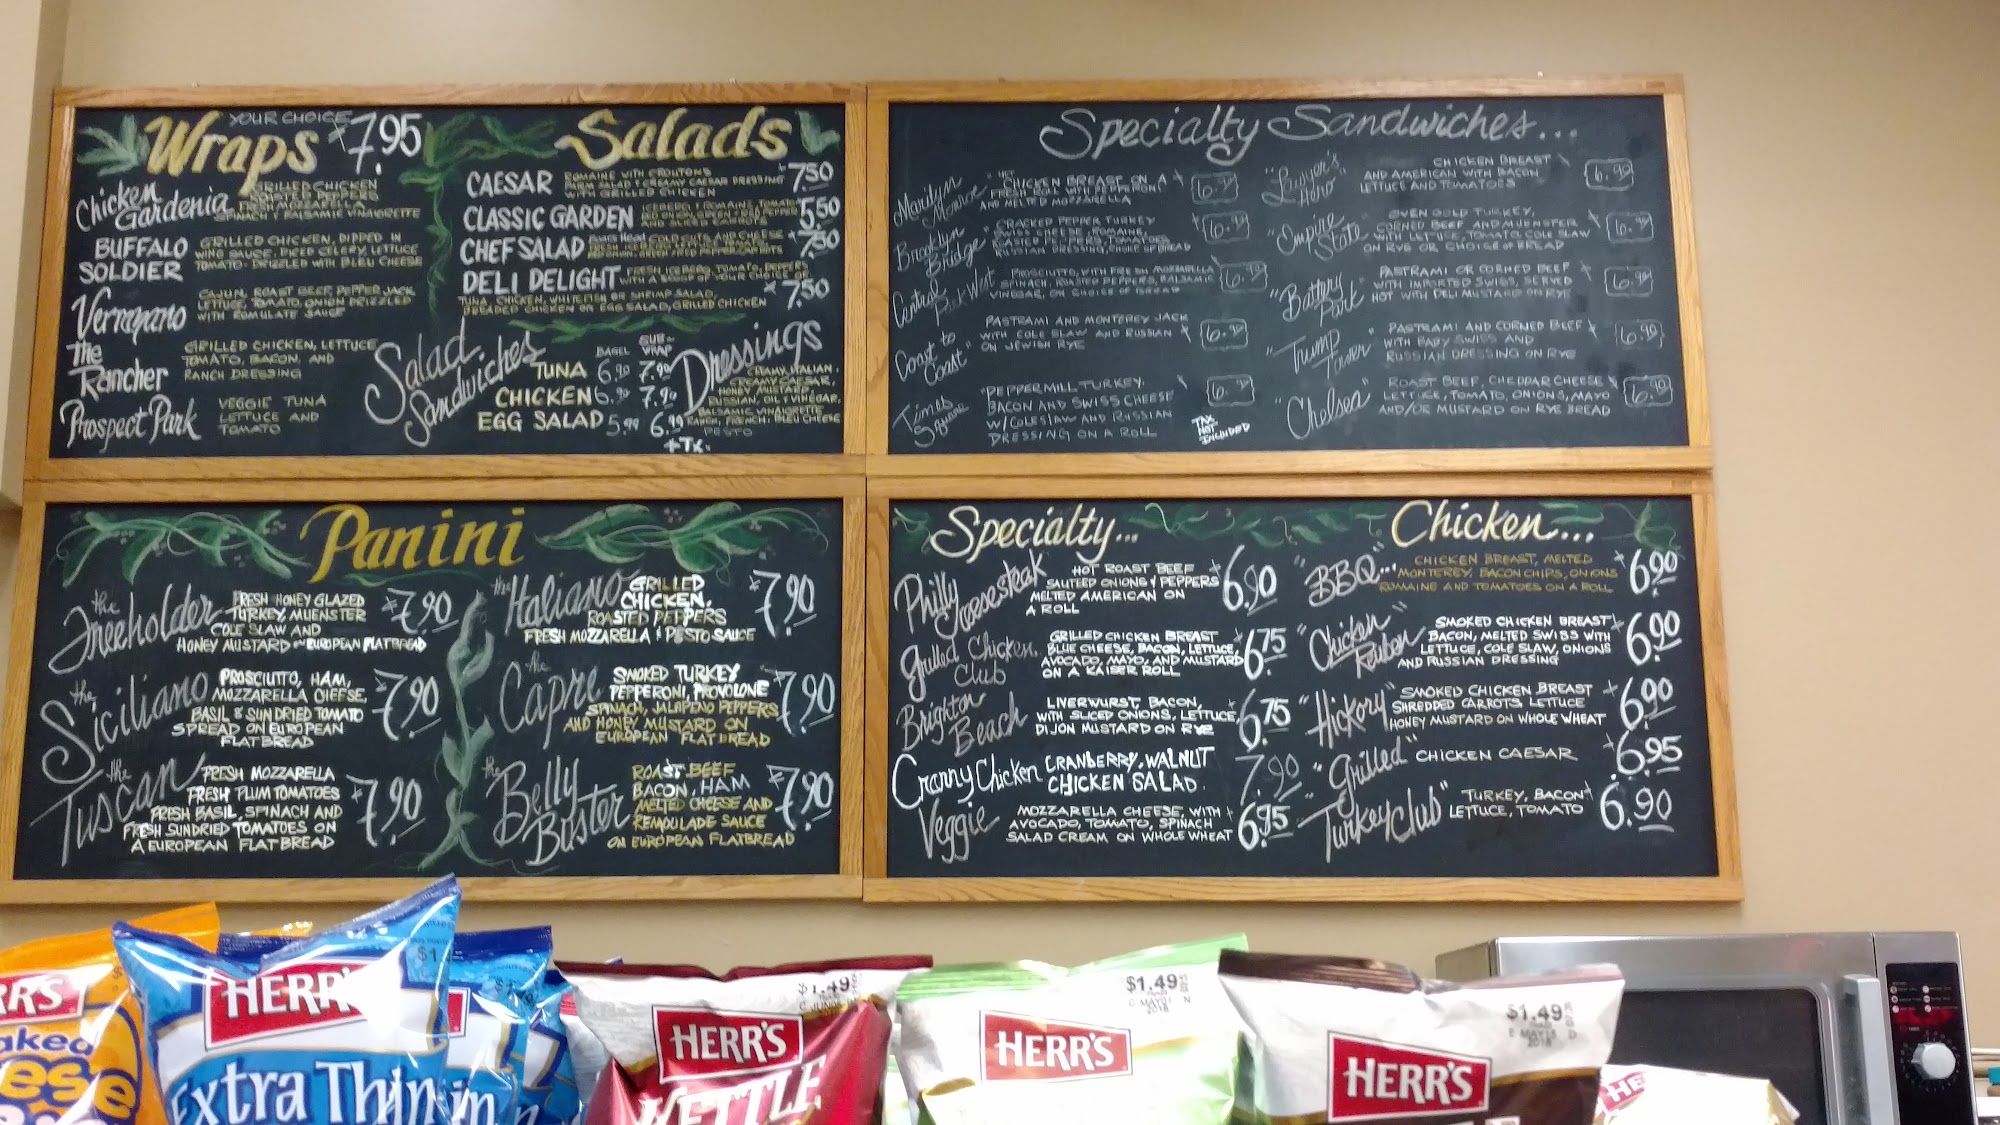 YOUR CHOICE
Wraps $7.95
Chicken Gardenia
GRILLED CHICKEN
ROASTED PEPPERS
FRESH MOZZARELLA
SPINACH & BALSAMIC VINAIGRETTE
BUFFALO SOLDIER
GRILLED CHICKEN, DIPPED IN
WING SAUCE, DICED CELERY, LETTUCE
TOMATO. DRIZZLED WITH BLEU CHEESE
Verrazano
CAJUN, ROAST BEEF, PEPPER JACK
LETTUCE, TOMATO, ONION DRIZZLED
WITH ROMULATE SAUCE
The Rancher
GRILLED CHICKEN, LETTUCE
TOMATO, BACON, AND
RANCH DRESSING
Prospect Park
VEGGIE TUNA
LETTUCE AND
TOMATO
Salads
CAESAR
ROMAINE WITH CROUTONS
PARM SALAD & CREAMY CAESAR DRESSING
WITH GRILLED CHICKEN
7.50
CLASSIC GARDEN
ICEBERG & ROMAINE, TOMATO
5.50
CHEF SALAD
BOARS HEAD COLD CUTS AND CHEESE
7.50
DELI DELIGHT
FRESH ICEBERG, TOMATO, PEPPERS
WITH A SCOOP OF YOUR CHOICE OF
TUNA, CHICKEN, WHITEFISH OR SHRIMP SALAD,
BREADED CHICKEN OR EGG SALAD, GRILLED CHICKEN
7.50
Salad Sandwiches
BAGEL
SUB - WRAP
TUNA 6.90 7.90
CHICKEN 6.90 7.90
EGG SALAD 5.99 6.99
+TX.
Dressings
CREAMY ITALIAN
CREAMY CAESAR,
HONEY MUSTARD,
RUSSIAN, OIL & VINEGAR,
BALSAMIC VINAIGRETTE
RANCH, FRENCH, BLEU CHEESE
PESTO
Specialty Sandwiches...
Marilyn Monroe
HOT
CHICKEN BREAST ON A
FRESH ROLL WITH PEPPERONI
AND MELTED MOZZARELLA
Brooklyn Bridge
CRACKED PEPPER TURKEY
SWISS CHEESE, ROMAINE,
ROASTED PEPPERS, TOMATOES
RUSSIAN DRESSING, CHOICE OF BREAD
Central Park West
PROSCIUTTO, WITH FRESH MOZZARELLA
SPINACH, ROASTED PEPPERS, BALSAMIC
VINEGAR, ON CHOICE OF BREAD
Coast to Coast"
PASTRAMI AND MONTEREY JACK
WITH COLE SLAW AND RUSSIAN
ON JEWISH RYE
6.90
Times Square
PEPPERMILL TURKEY,
BACON AND SWISS CHEESE
W/COLESLAW AND RUSSIAN
DRESSING ON A ROLL
6.90
TAX NOT INCLUDED
"Lawyer's Hero"
CHICKEN BREAST
AND AMERICAN WITH BACON
LETTUCE AND TOMATOES
6.90
"Empire State"
OVEN GOLD TURKEY,
CORNED BEEF AND MUENSTER
WITH LETTUCE, TOMATO, COLE SLAW
ON RYE OR CHOICE OF BREAD
6.90
"Battery Park"
PASTRAMI OR CORNED BEEF
WITH IMPORTED SWISS, SERVED
HOT WITH DELI MUSTARD ON RYE
6.90
"Trump Tower"
PASTRAMI AND CORNED BEEF
WITH BABY SWISS AND
RUSSIAN DRESSING ON RYE
6.90
"Chelsea"
ROAST BEEF, CHEDDAR CHEESE
LETTUCE, TOMATO, ONIONS, MAYO
AND/OR MUSTARD ON RYE BREAD
6.90
Panini
the Freeholder
FRESH HONEY GLAZED
TURKEY, MUENSTER
COLE SLAW AND
HONEY MUSTARD ON EUROPEAN FLATBREAD
7.90
the Siciliano
PROSCIUTTO, HAM,
MOZZARELLA CHEESE,
BASIL & SUNDRIED TOMATO
SPREAD ON EUROPEAN
FLATBREAD
7.90
the Tuscan
FRESH MOZZARELLA
FRESH PLUM TOMATOES
FRESH BASIL, SPINACH AND
FRESH SUNDRIED TOMATOES ON
A EUROPEAN FLATBREAD
7.90
the Italiano
GRILLED
CHICKEN,
ROASTED PEPPERS
FRESH MOZZARELLA & PESTO SAUCE
7.90
the Capre
SMOKED TURKEY
PEPPERONI, PROVOLONE
SPINACH, JALAPENO PEPPERS
AND HONEY MUSTARD ON
EUROPEAN FLATBREAD
7.90
the Belly Buster
ROAST BEEF
BACON, HAM
MELTED CHEESE AND
REMOULADE SAUCE
ON EUROPEAN FLATBREAD
7.90
Specialty...
Philly Cheesesteak
HOT ROAST BEEF
SAUTEED ONIONS & PEPPERS
MELTED AMERICAN ON
A ROLL
6.90
Grilled Chicken Club
GRILLED CHICKEN BREAST
BLUE CHEESE, BACON, LETTUCE,
AVOCADO, MAYO, AND MUSTARD
ON A KAISER ROLL
6.75
Brighton Beach
LIVERWURST, BACON,
WITH SLICED ONIONS, LETTUCE,
DIJON MUSTARD ON RYE
6.75
Cranny Chicken
CRANBERRY, WALNUT
CHICKEN SALAD.
7.90
Veggie
MOZZARELLA CHEESE, WITH
AVOCADO, TOMATO, SPINACH
SALAD CREAM ON WHOLE WHEAT
6.95
Chicken...
"BBQ"...
CHICKEN BREAST, MELTED
MONTEREY, BACON CHIPS, ONIONS
ROMAINE AND TOMATOES ON A ROLL
6.90
"Chicken Reuben"
SMOKED CHICKEN BREAST
BACON, MELTED SWISS WITH
LETTUCE, COLE SLAW, ONIONS
AND RUSSIAN DRESSING
6.90
"Hickory"
SMOKED CHICKEN BREAST
SHREDDED CARROTS LETTUCE
HONEY MUSTARD ON WHOLE WHEAT
6.90
"Grilled" CHICKEN CAESAR 6.95
"Turkey Club"
TURKEY, BACON
LETTUCE, TOMATO
6.90
HERR'S
Extra Thin
HERR'S
KETTLE
$1.49
HERR'S
$1.49
MAY01
2018
HERR'S
$1.49
MAY15
2018